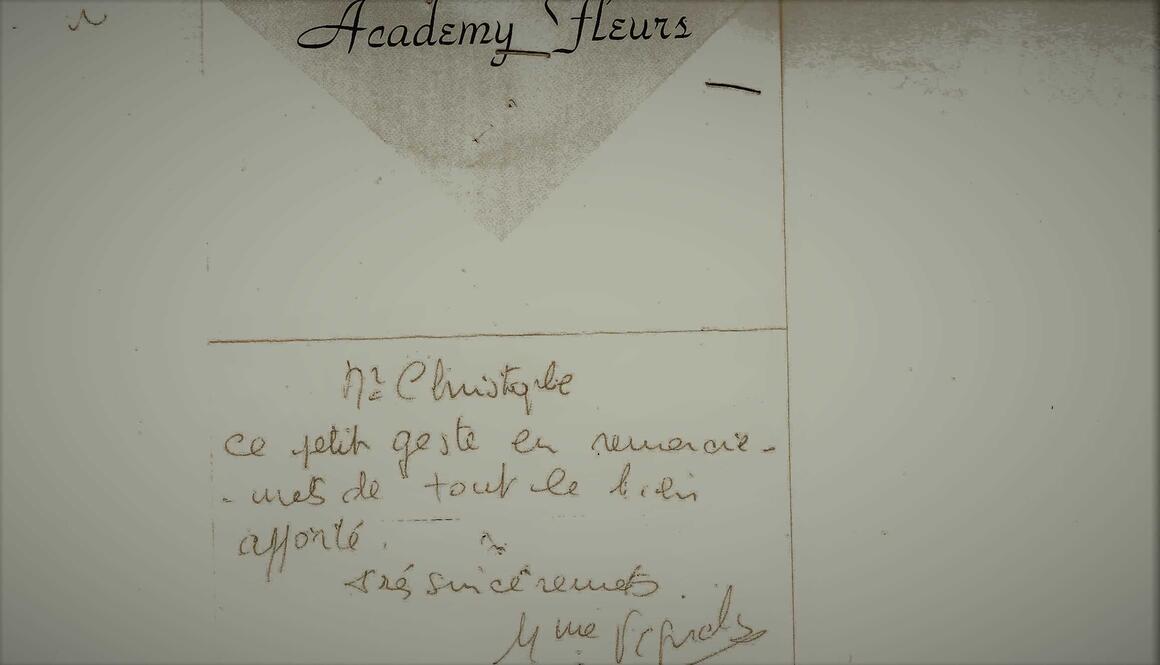 Academy Fleurs
Mr Christophe
ce petit geste en remercie-
-mets de tout le bien
apporté.
très sincèremets.
Mme